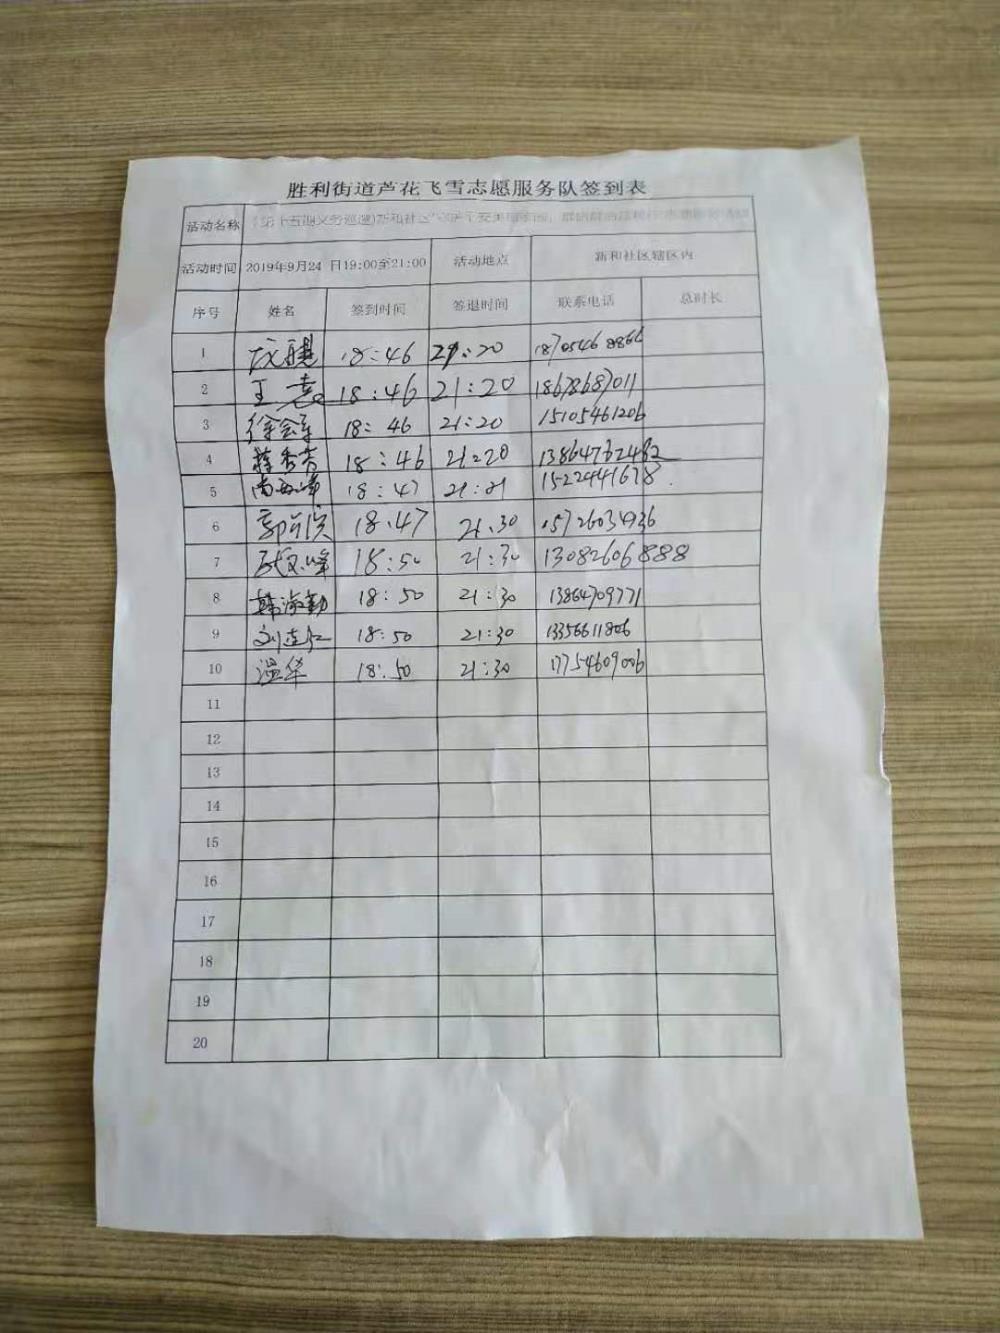 胜利街道芦花飞雪志愿服务队签到表
活动名称
活动时间 2019年9月24 日19:00至21:00 活动地点 新和社区辖区内
序号 姓名 签到时间 签退时间 联系电话 总时长
1 18:46 21:20 18705468866
2 王 18:46 21:20 18678687011
3 徐会军 18:46 21:20 15105461206
4 18:46 21:20 13864762482
5 18:47 21:21 15224441678
6 郭 18.47 21.30 15726034936
7 18:50 21:30 13082606888
8 韩 18:50 21:30 13864709771
9 刘 18:50 21:30 13356611806
10 温华 18:50 21:30 17754609006
11
12
13
14
15
16
17
18
19
20